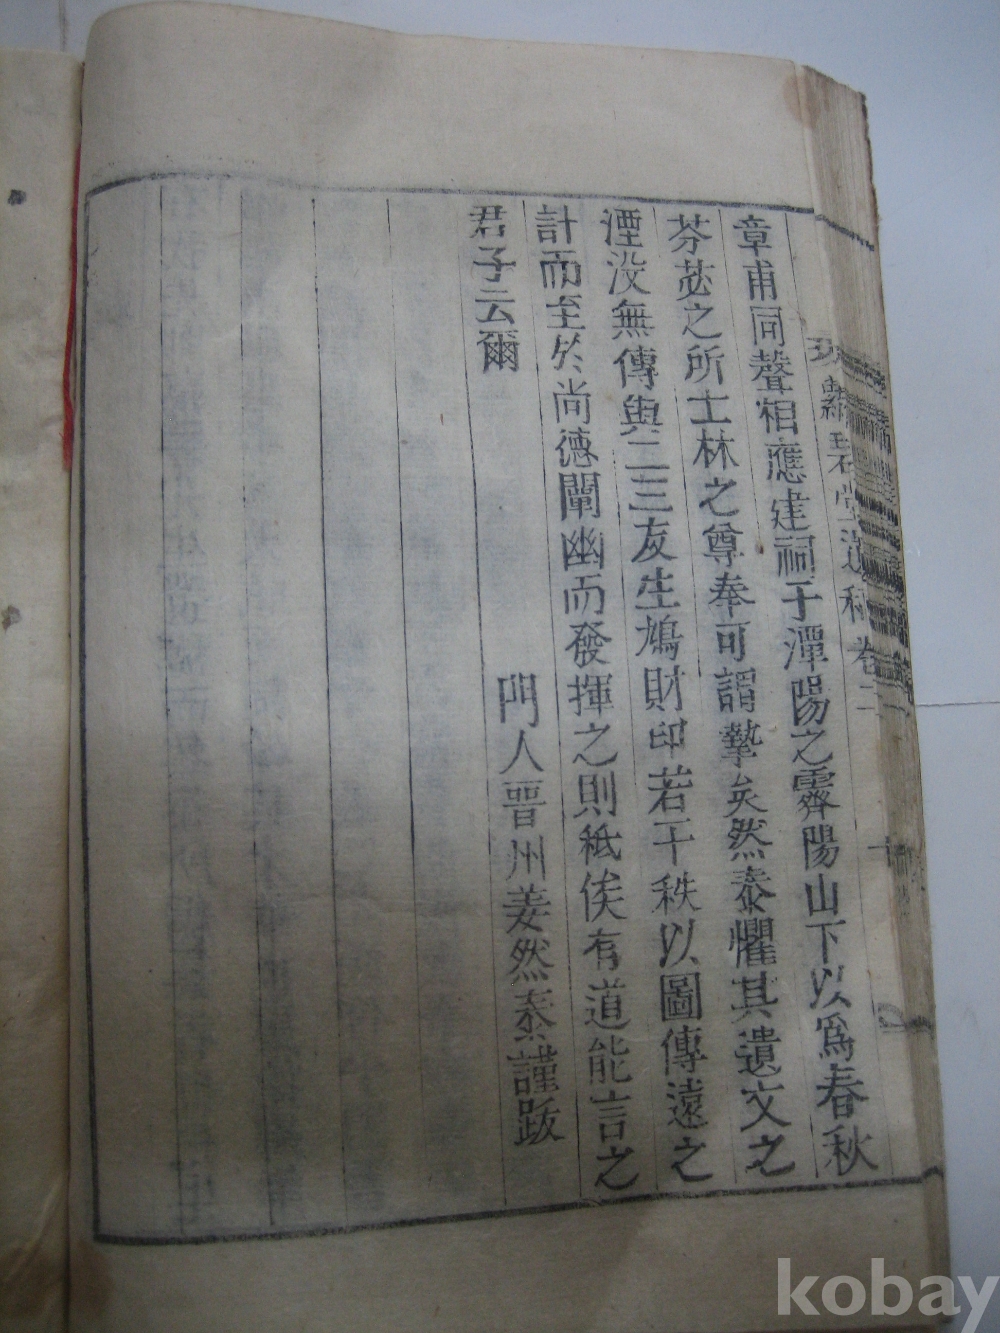 章甫同聲相應建祠于潭陽之霽陽山下以爲春秋
芬苾之所士林之尊奉可謂摯矣然泰懼其遺文之
湮没無傳與二三友生鳩財印若干秩以圖傳遠之
計而至於尚德闡幽而發揮之則秪俟有道能言之
君子云爾
門人晋州姜然泰謹跋
碧堂遺稿卷二
kobay